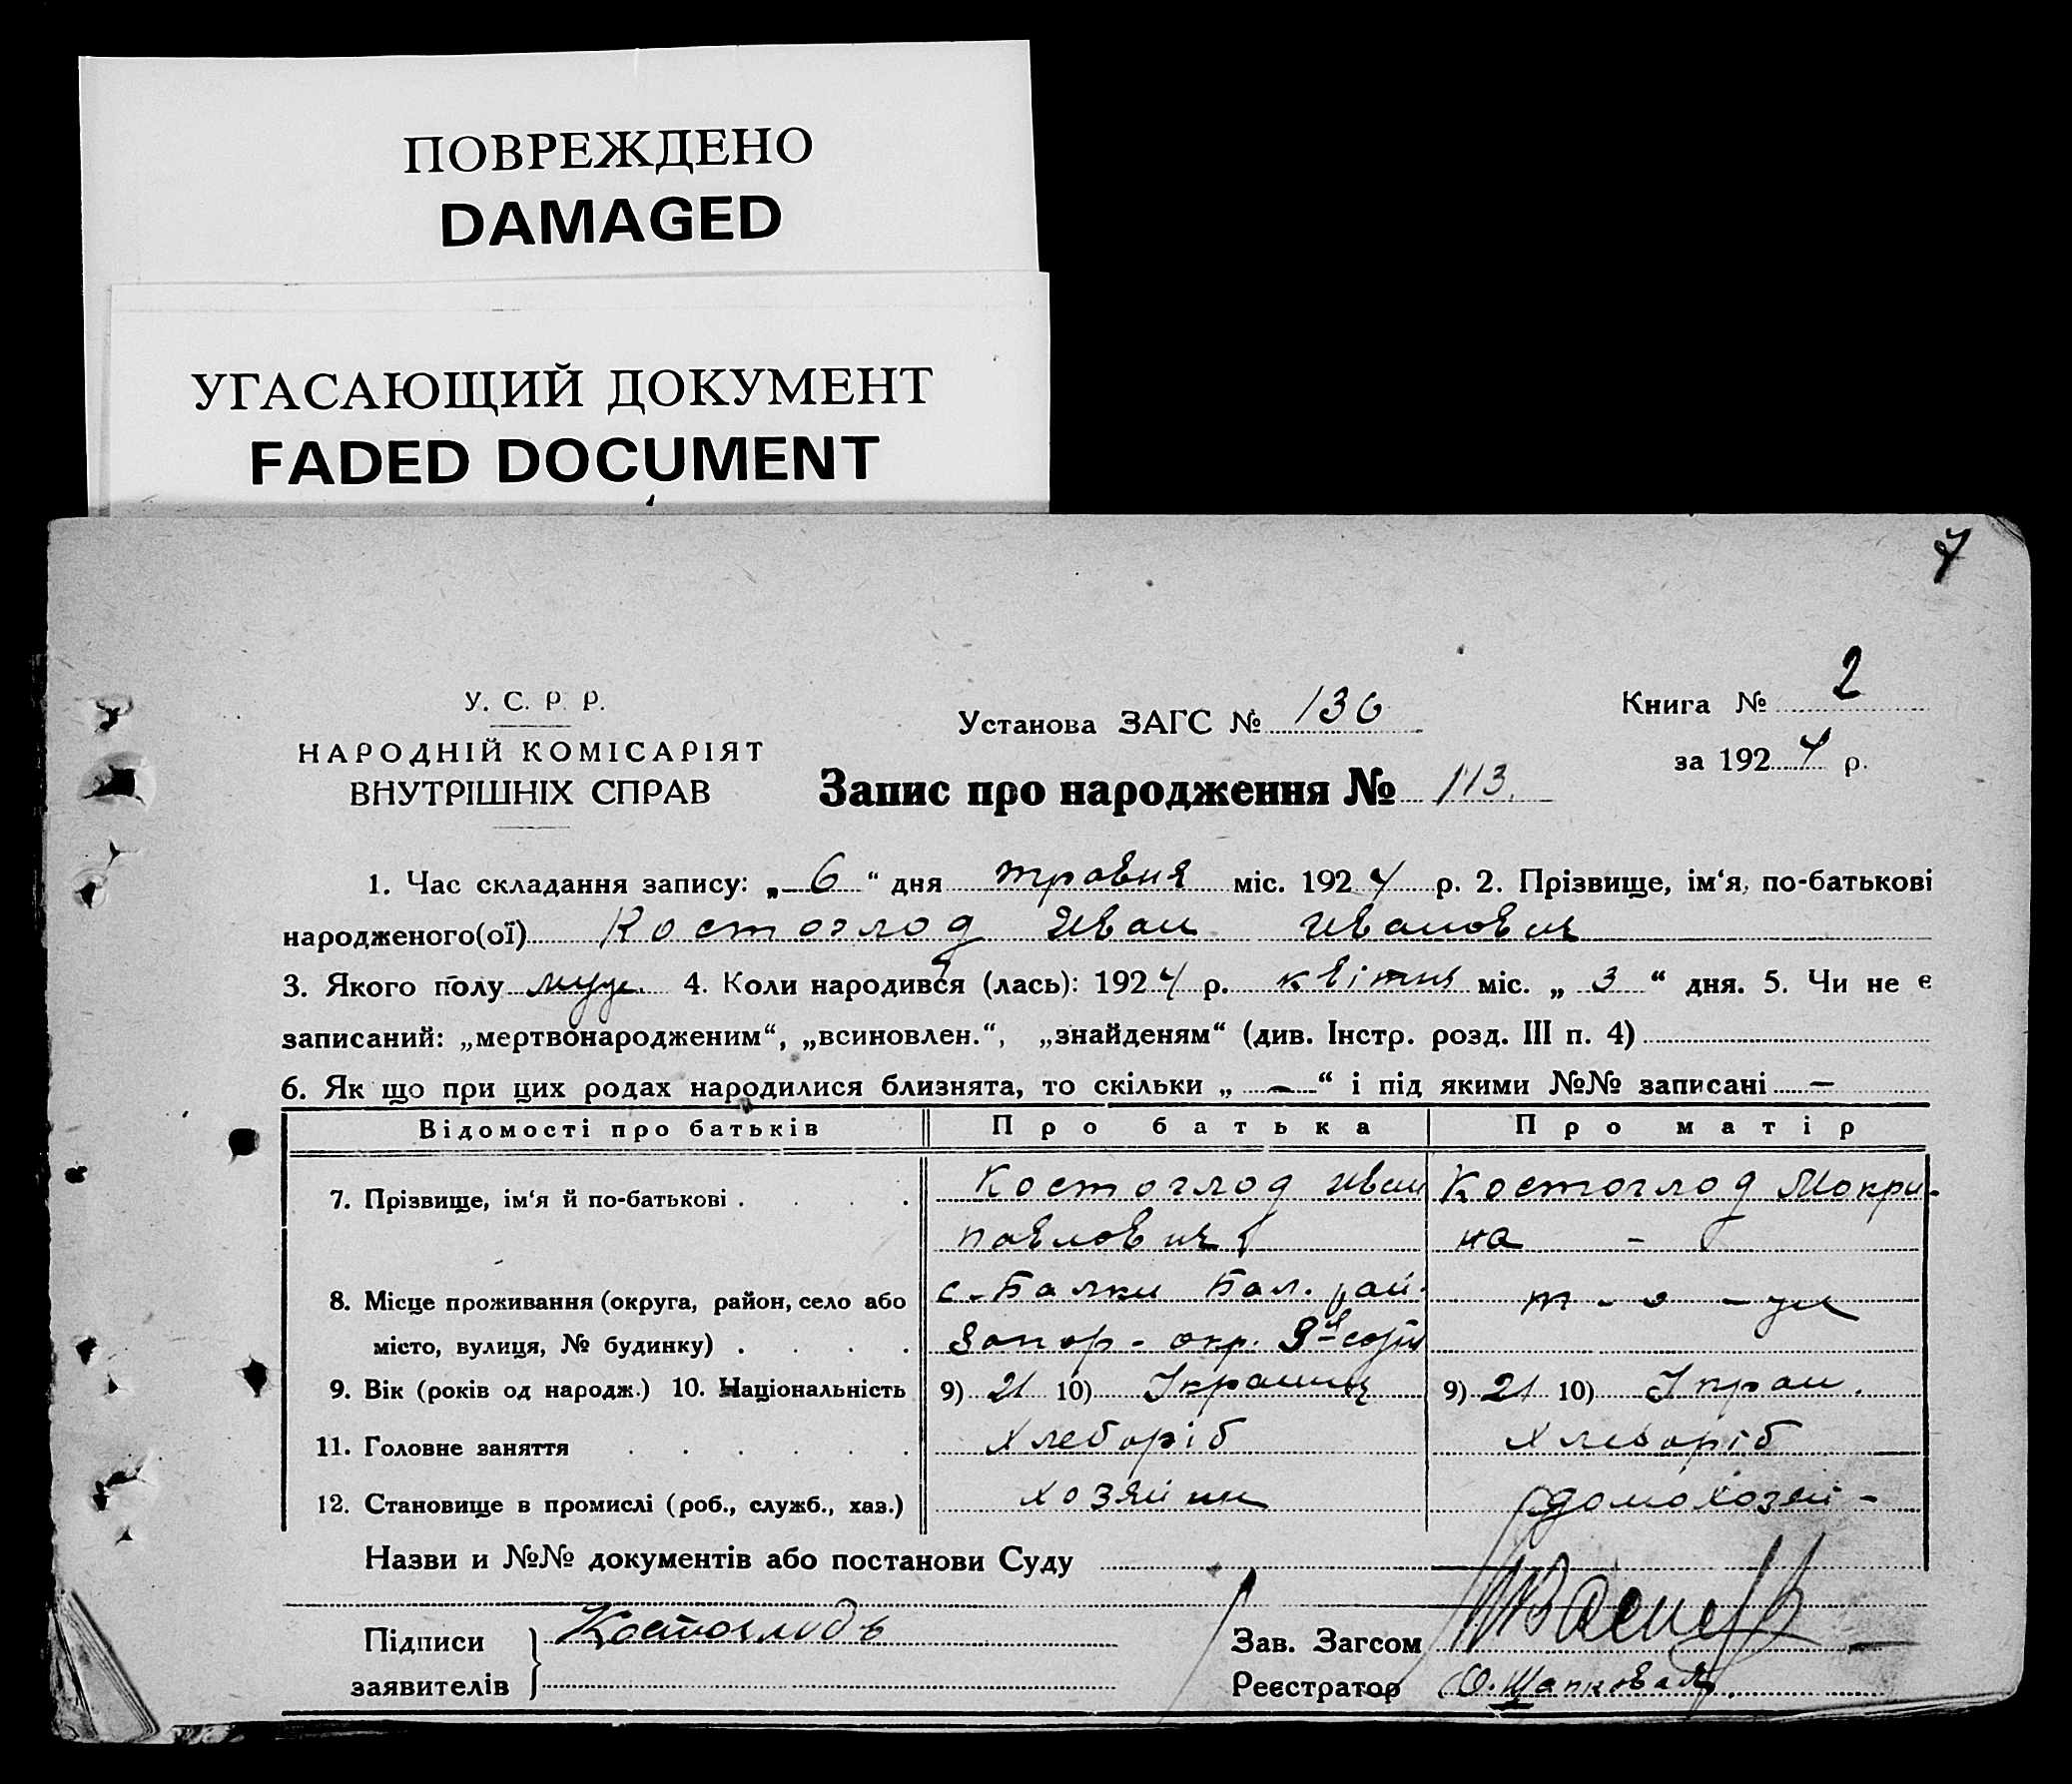 ПОВРЕЖДЕНО
DAMAGED
УГАСАЮЩИЙ ДОКУМЕНТ
FADED DOCUMENT
7
У. С. Р. Р.
НАРОДНІЙ КОМІСАРІЯТ
ВНУТРІШНІХ СПРАВ
Установа ЗАГС № 136
Запис про народження № 113.
Книга № 2
за 1924 р.
1. Час складання запису: „ 6 “ дня травня міс. 1924 р. 2. Прізвище, ім‘я, по-батькові
народженого(ої) Костоглод Иван Иванович
3. Якого полу муж. 4. Коли народився (лась): 1924 р. квітня міс. „ 3 “ дня. 5. Чи не є
записаний: „мертвонародженим“, „всиновлен.“, „знайденям“ (див. Інстр. розд. III п. 4)
6. Як що при цих родах народилися близнята, то скільки „ – “ і під якими №№ записані –
Відомості про батьків Про батька Про матір
7. Прізвище, ім‘я й по-батькові . Костоглод Иван Костоглод Мокри-
Павлович на -
8. Місце проживання (округа, район, село або с. Балки Бал. рай.
місто, вулиця, № будинку) . Запор. окр.
9. Вік (років од народж.) 10. Національність 9) 21 10) Украинц 9) 21 10) Украин.
11. Головне заняття Хлеборіб Хлеборіб
12. Становище в промислі (роб., служб., хаз.) хозяин домохозяй-
Назви и №№ документів або постанови Суду
Підписи Костоглодъ Зав. Загсом
заявителів Реєстратор